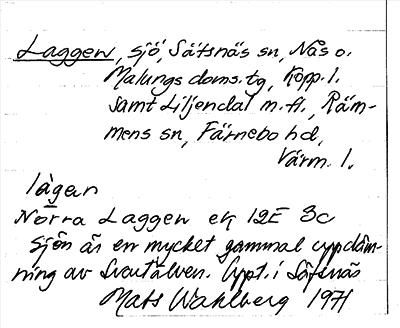 Laggen, sjö, Säfsnäs sn, Nås o.
Malungs doms. tg, Kopp. l.
samt Liljendal m. fl., Räm-
mens sn, Färnebo hd,
Värm. l.
lågan
Norra Laggen ek 12E 3c
Sjön är en mycket gammal uppdäm-
ning av Svartälven. Uppt. i Säfsnäs
Mats Wahlberg 1971